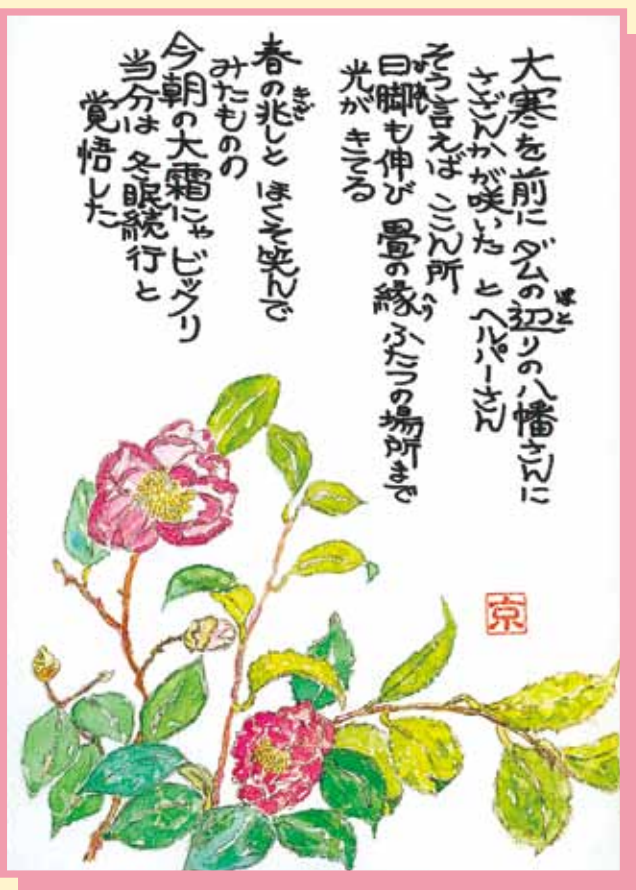 大寒を前に ダムの辺りの八幡さんに
ほと
さざんかが咲いた と ヘルパーさん
そう言えば ここん所
日脚も伸び 畳の縁 ふたつの場所まで
へり
光が きてる
春の兆しと ほくそ笑んで
きざ
みたものの
今朝の大霜にゃ ビックリ
当分は 冬眠続行 と
覚悟した
京